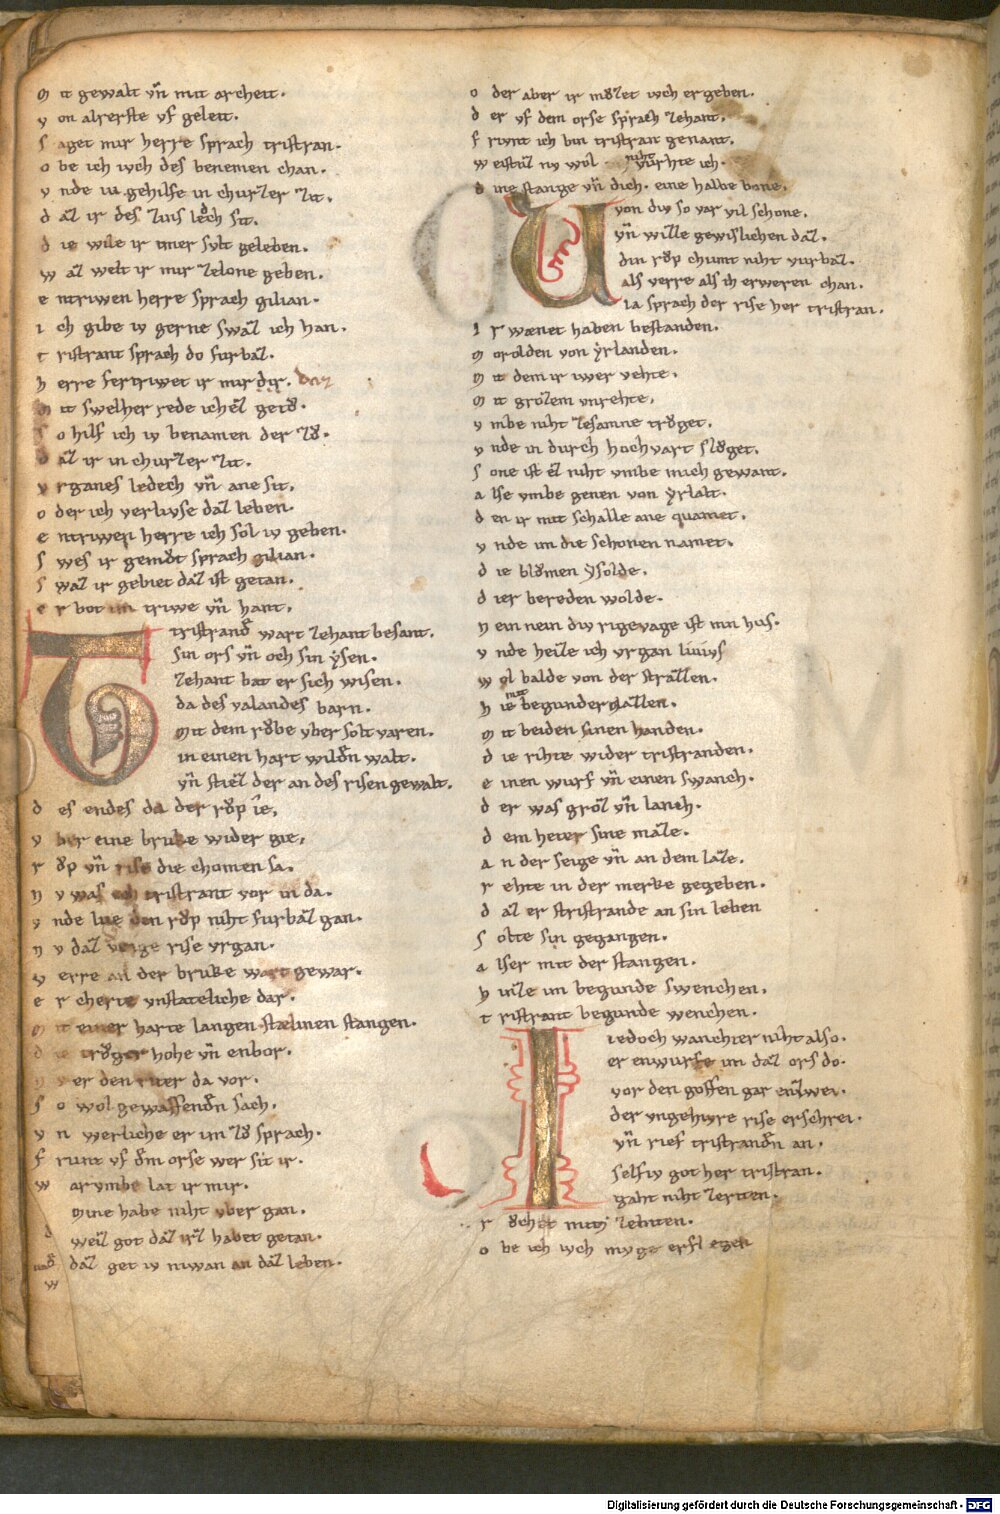 m it gewalt vn̄ mit archeit.
v on alrerste vf geleit.
s aget mir herre sprach tristran.
o be ich ivch des benemen chan.
v nde iu gehilfe in churzer zit.
d az ir des zins ledch sit.
d ie wile ir imer sylt geleben.
w az welt ir mir zelone geben.
e ntriwen herre sprach gilian.
i ch gibe iv gerne swaz ich han.
t ristrant sprach do furbaz.
h erre fertriwet ir mir daz.
m it swelher rede ichez getuͦ.
s o hilf ich iv benamen der zuͦ.
d az ir in churzer zit.
v rganes ledech vn̄ ane sit.
o der ich verlivse daz leben.
e ntriwen herre ich sol iv geben.
s wes ir gemuͦt sprach gilian.
s waz ir gebiet daz ist getan.
e r bot im triwe vn̄ hant.
Tristrand̄ wart zehant besant.
sin ors vn̄ och sin ẏsen.
zehant bat er sich wisen.
da des valandes barn.
mit dem ruͦbe vber solt varen.
in einen hart wildn̄ walt.
vn̄ stiez der an des risen gewalt.
d es endes da der ruͦp ie.
v ber eine bruke wider gie.
r uͦp vn̄ rise die chomen sa.
n v was och tristrant vor in da.
v nde lie den ruͦp niht furbaz gan.
n v daz veige rise vrgan.
v erre an der bruke wart gewar.
e r cherte vnstateliche dar.
m it einer harte langen stæhinen stangen.
d ie truͦger hohe vn̄ enbor.
n v er den riter da vor.
s o wol gewaffendn̄ sach.
v n werliche er im zuͦ sprach.
f riunt vf dm̄ orse wer sit ir.
w arvmbe lat ir mir.
mine habe niht vber gan.
d weiz got daz irz habet getan.
und̄ daz get iv niwan an daz leben.
w
o der aber ir muͦzet ivch ergeben.
d er vf dem orse sprach zehant.
f riwnt ich bin tristrant genant.
w eistuz nv wol niht vurhte ich.
d ine stange vn̄ dich. eine halbe bone.
Uvon div so var vil schone.
vn̄ wizze gewislichen daz.
din ruͦp chumt niht vurbaz.
als verre als ih erweren chan.
ia sprach der rise her tristran.
I r wænet haben bestanden.
m orolden von ẏrlanden.
m it dem ir iwer vehte.
m it grozem vnrehte.
v mbe niht zesamne truͦget.
v nde in durch hochvart sluͦget.
s one ist ez niht vmbe mich gewant.
a lse vmbe genen von ẏrlant.
d en ir mit schalle ane quamet.
v nde im die schonen namet.
d ie bluͦmen ẏsolde.
d ier bereden wolde.
n ein nein div rigevage ist min hus.
v nde heize ich vrgan liuivs
w ol balde von der strazzen.
h ie mit begunder gazzen.
m it beiden sinen handen.
d ie rihte wider tristranden.
e inen wurf vn̄ einen swanch.
d er was groz vn̄ lanch.
d em heter sine maze.
a n der seige vn̄ an dem laze.
r ehte in der merke gegeben.
d az er stristrande an sin leben
s olte sin gegangen.
a lser mit der stangen.
h inze im begunde swenchen.
t ristrant begunde wenchen.
Iiedoch wanchter niht also.
er enwurfe im daz ors do.
vor den goffen gar enzwei.
der vngehivre rise erschrei.
vn̄ rief tristrandn̄ an.
selfiv got her tristran.
gaht niht zeriten.
r uͦchet min zebiten.
o be ich ivch myge erfl egen
Digitalisierung gefördert durch die Deutsche Forschungsgemeinschaft - DFG